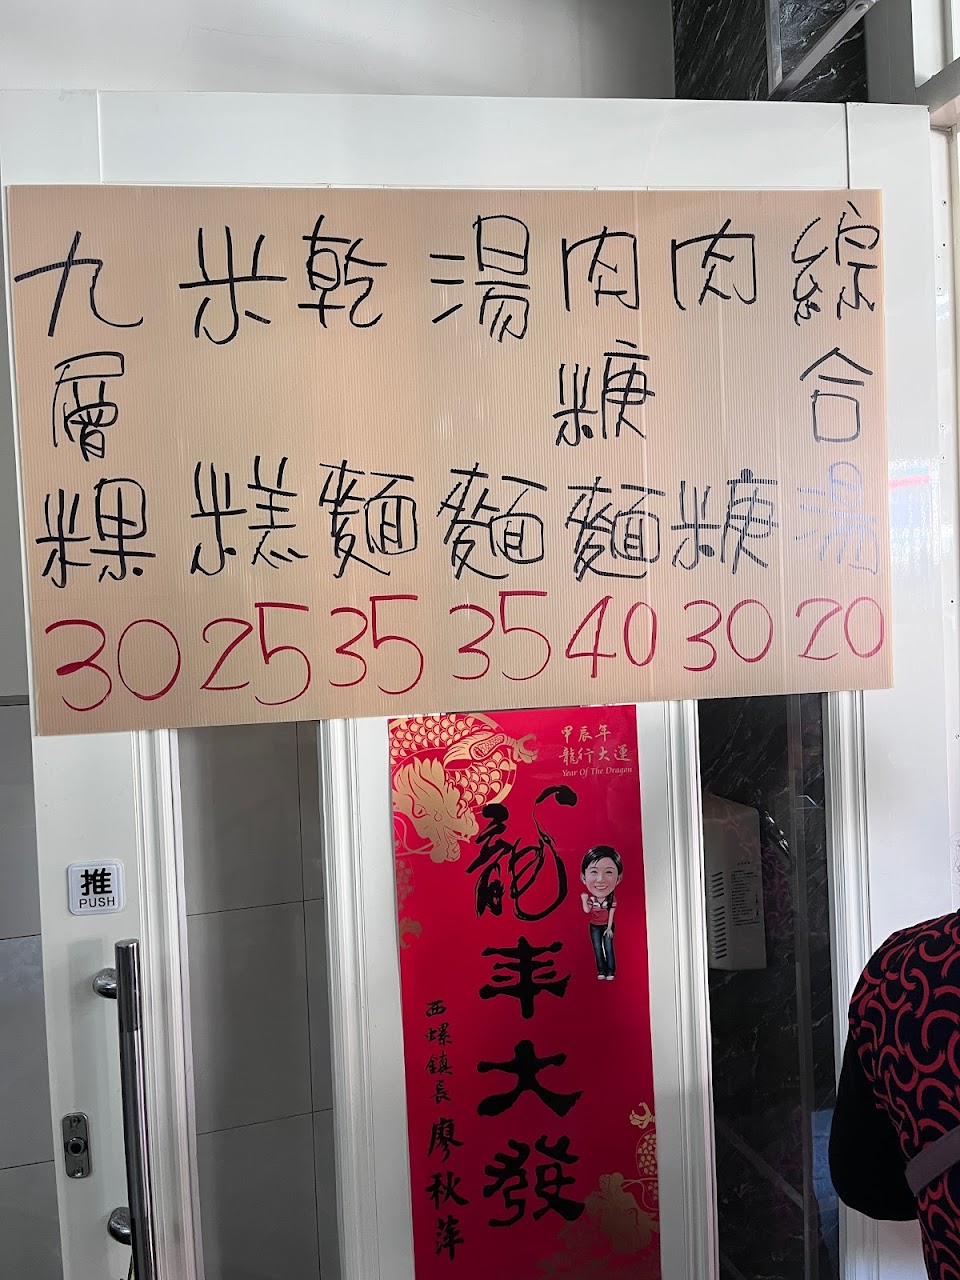 九層粿 30
米糕 25
乾麵 35
湯麵 35
肉糠麵 40
肉糠 30
綜合湯 20
甲辰年
龍行大運
Year Of The Dragon
龍年大發
西螺鎮長 廖秋萍
推
PUSH